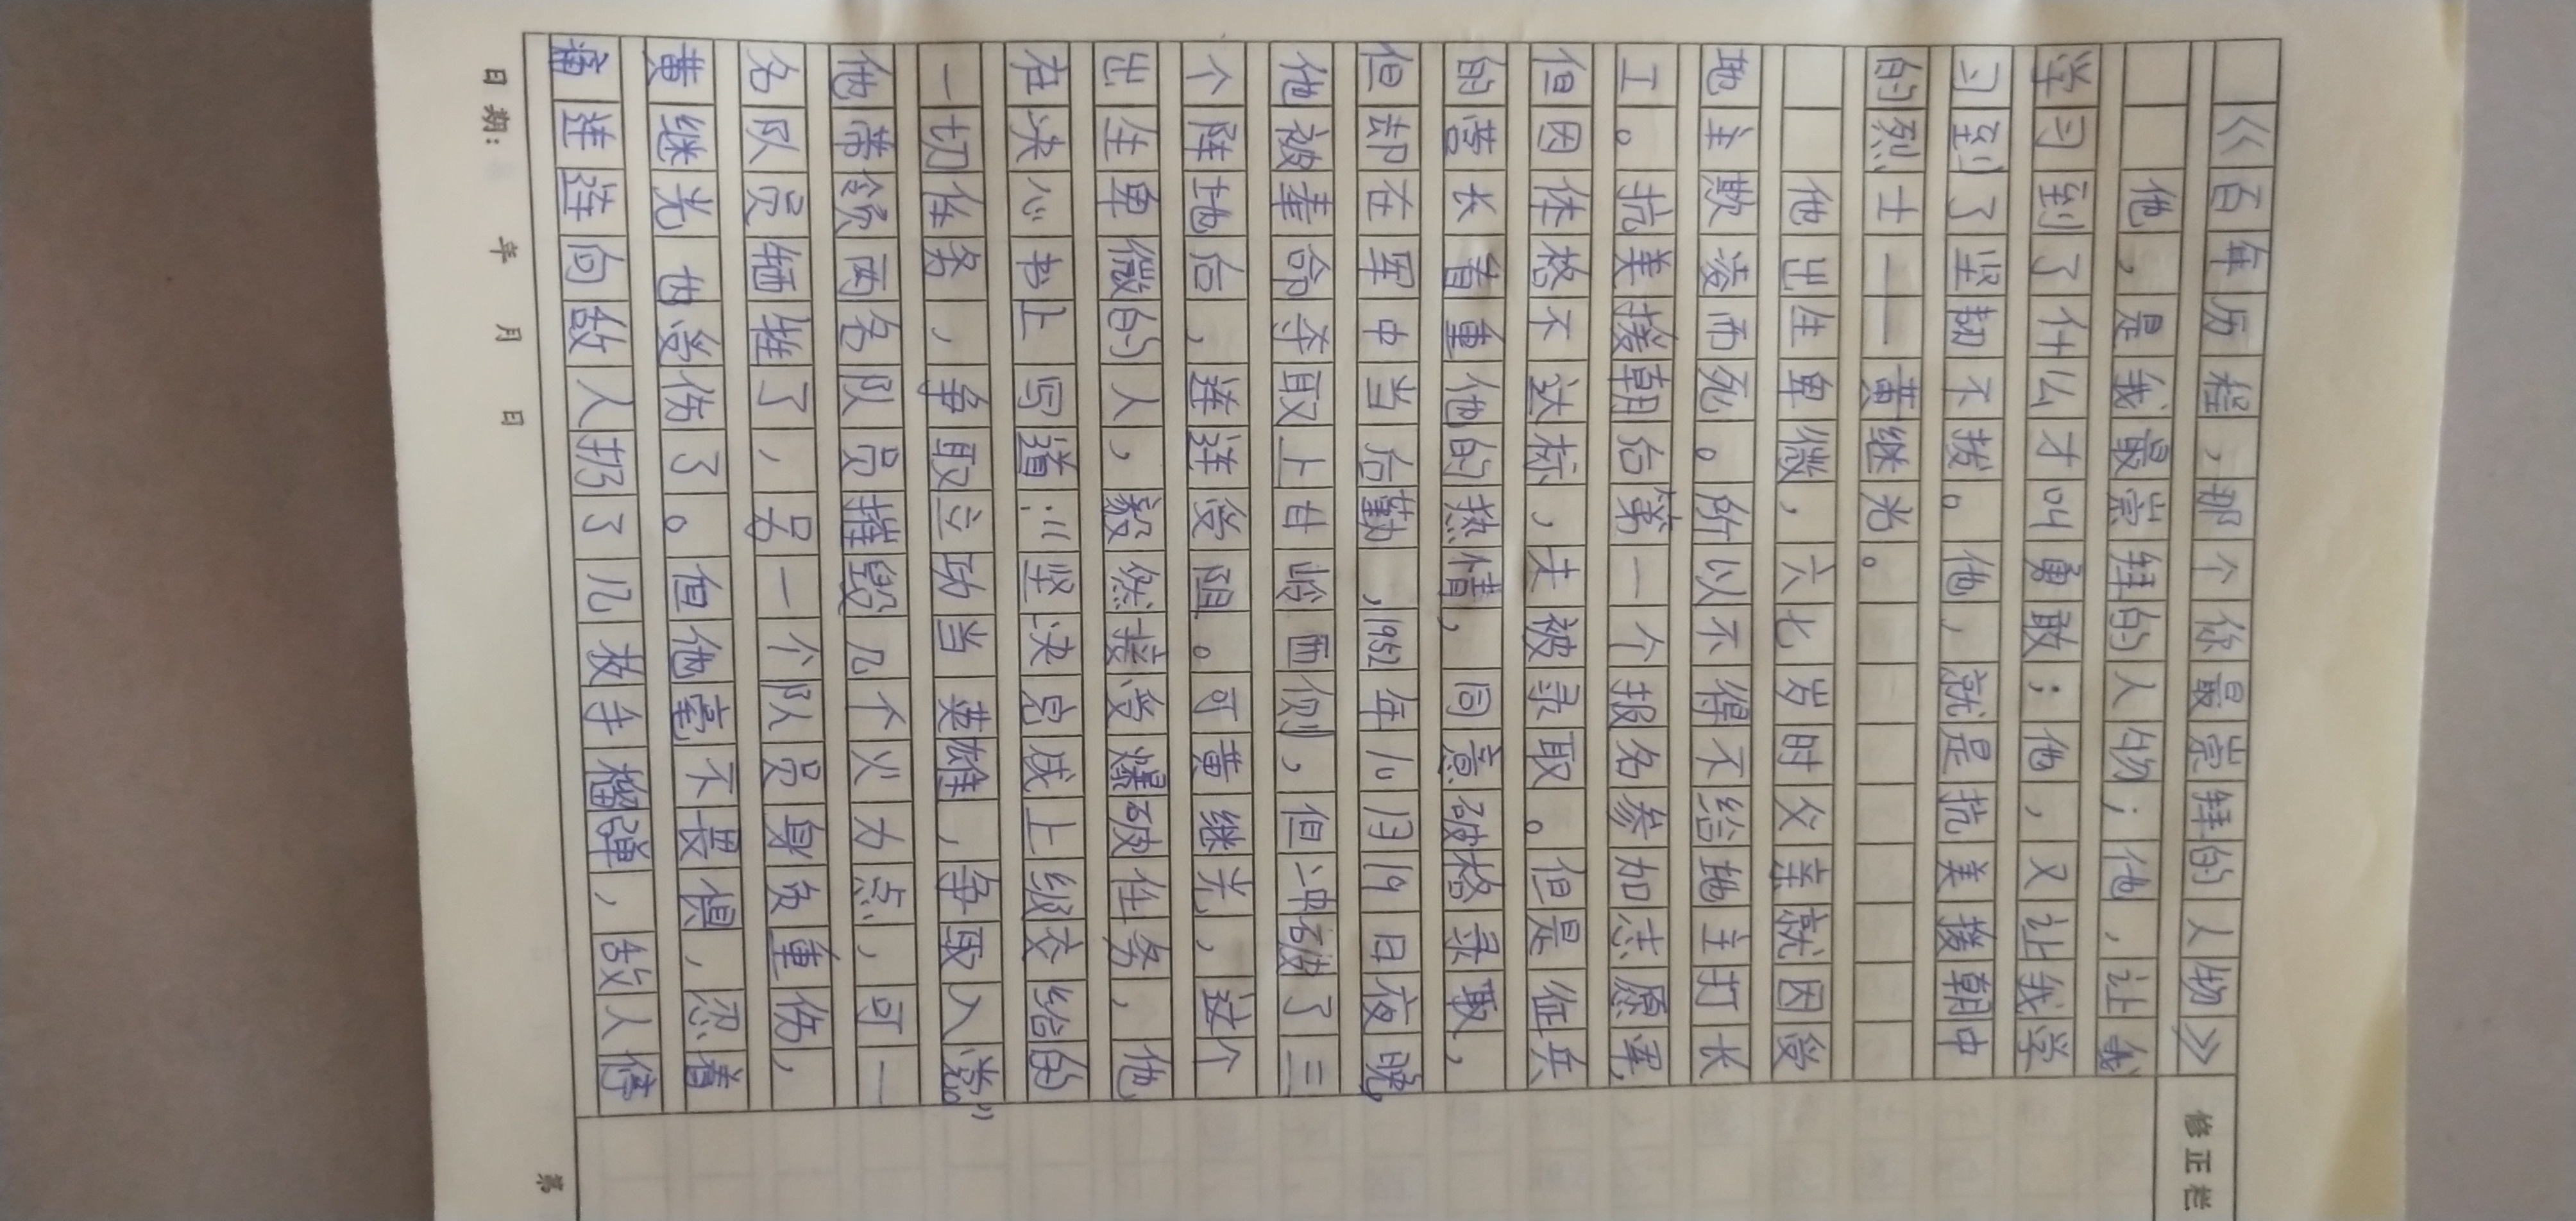 《百年历程，那个你最崇拜的人物》
他，是我最崇拜的人物；他，让我
学习到了什么才叫勇敢；他，又让我学
习到了坚韧不拔。他，就是抗美援朝中
的烈士——黄继光。
他出生卑微，六七岁时父亲就因受
地主欺凌而死。所以不得不给地主打长
工。抗美援朝后第一个报名参加志愿军，
但因体格不达标，未被录取。但是征兵
的营长看重他的热情，同意破格录取，
但却在军中当后勤，1952年10月19日夜晚，
他被奉命夺取上甘岭西侧，但冲破了三
个阵地后，连连受阻。可黄继光，这个
出生卑微的人，毅然接受爆破任务，他
在决心书上写道：“坚决完成上级交给的
一切任务，争取立功当英雄，争取入党。”
他带领两名队员摧毁几个火力点，可一
名队员牺牲了，另一个队员身负重伤，
黄继光也受伤了。但他毫不畏惧，忍着
痛连连向敌人扔了几枚手榴弹，敌人停
修正栏
日期： 年 月 日
第